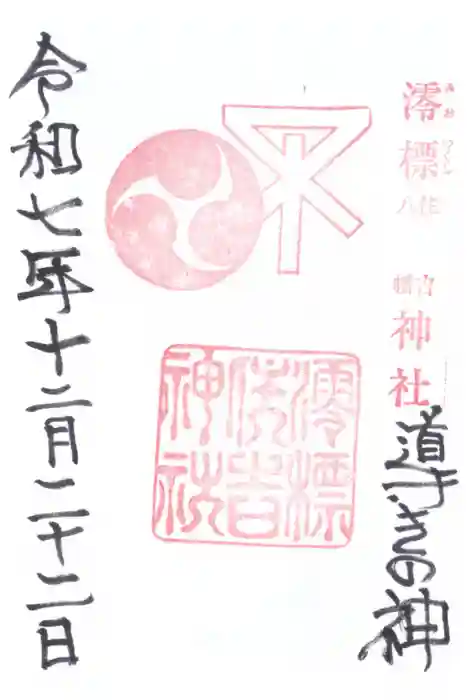 澪標
みおつくし
住吉
八幡
神社
道すきの神
澪標
住吉
神社
令和七年十二月二十二日